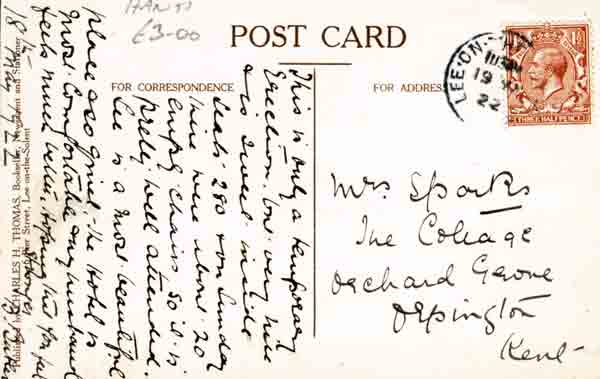 HANTS
£3-00
POST CARD
FOR CORRESPONDENCE
FOR ADDRESS
LEE-ON-
19 MY
22
THREE HALFPENCE
This is only a temporary
Erection. but very nice
& is sweet inside
Seats 280 & on Sunday
there were about 20
empty chairs so it is
pretty well attended.
Lee is a most beautiful
place and quiet - the Hotel is
most comfortable & my husband
feels much better. hoping this for
18th May 1922
Published by CHARLES H. THOMAS, Bookseller, Newsagent and Stationer,
Pier Street, Lee-on-the-Solent
Mrs Sparks
The Cottage
Orchard Grove
Orpington
Kent